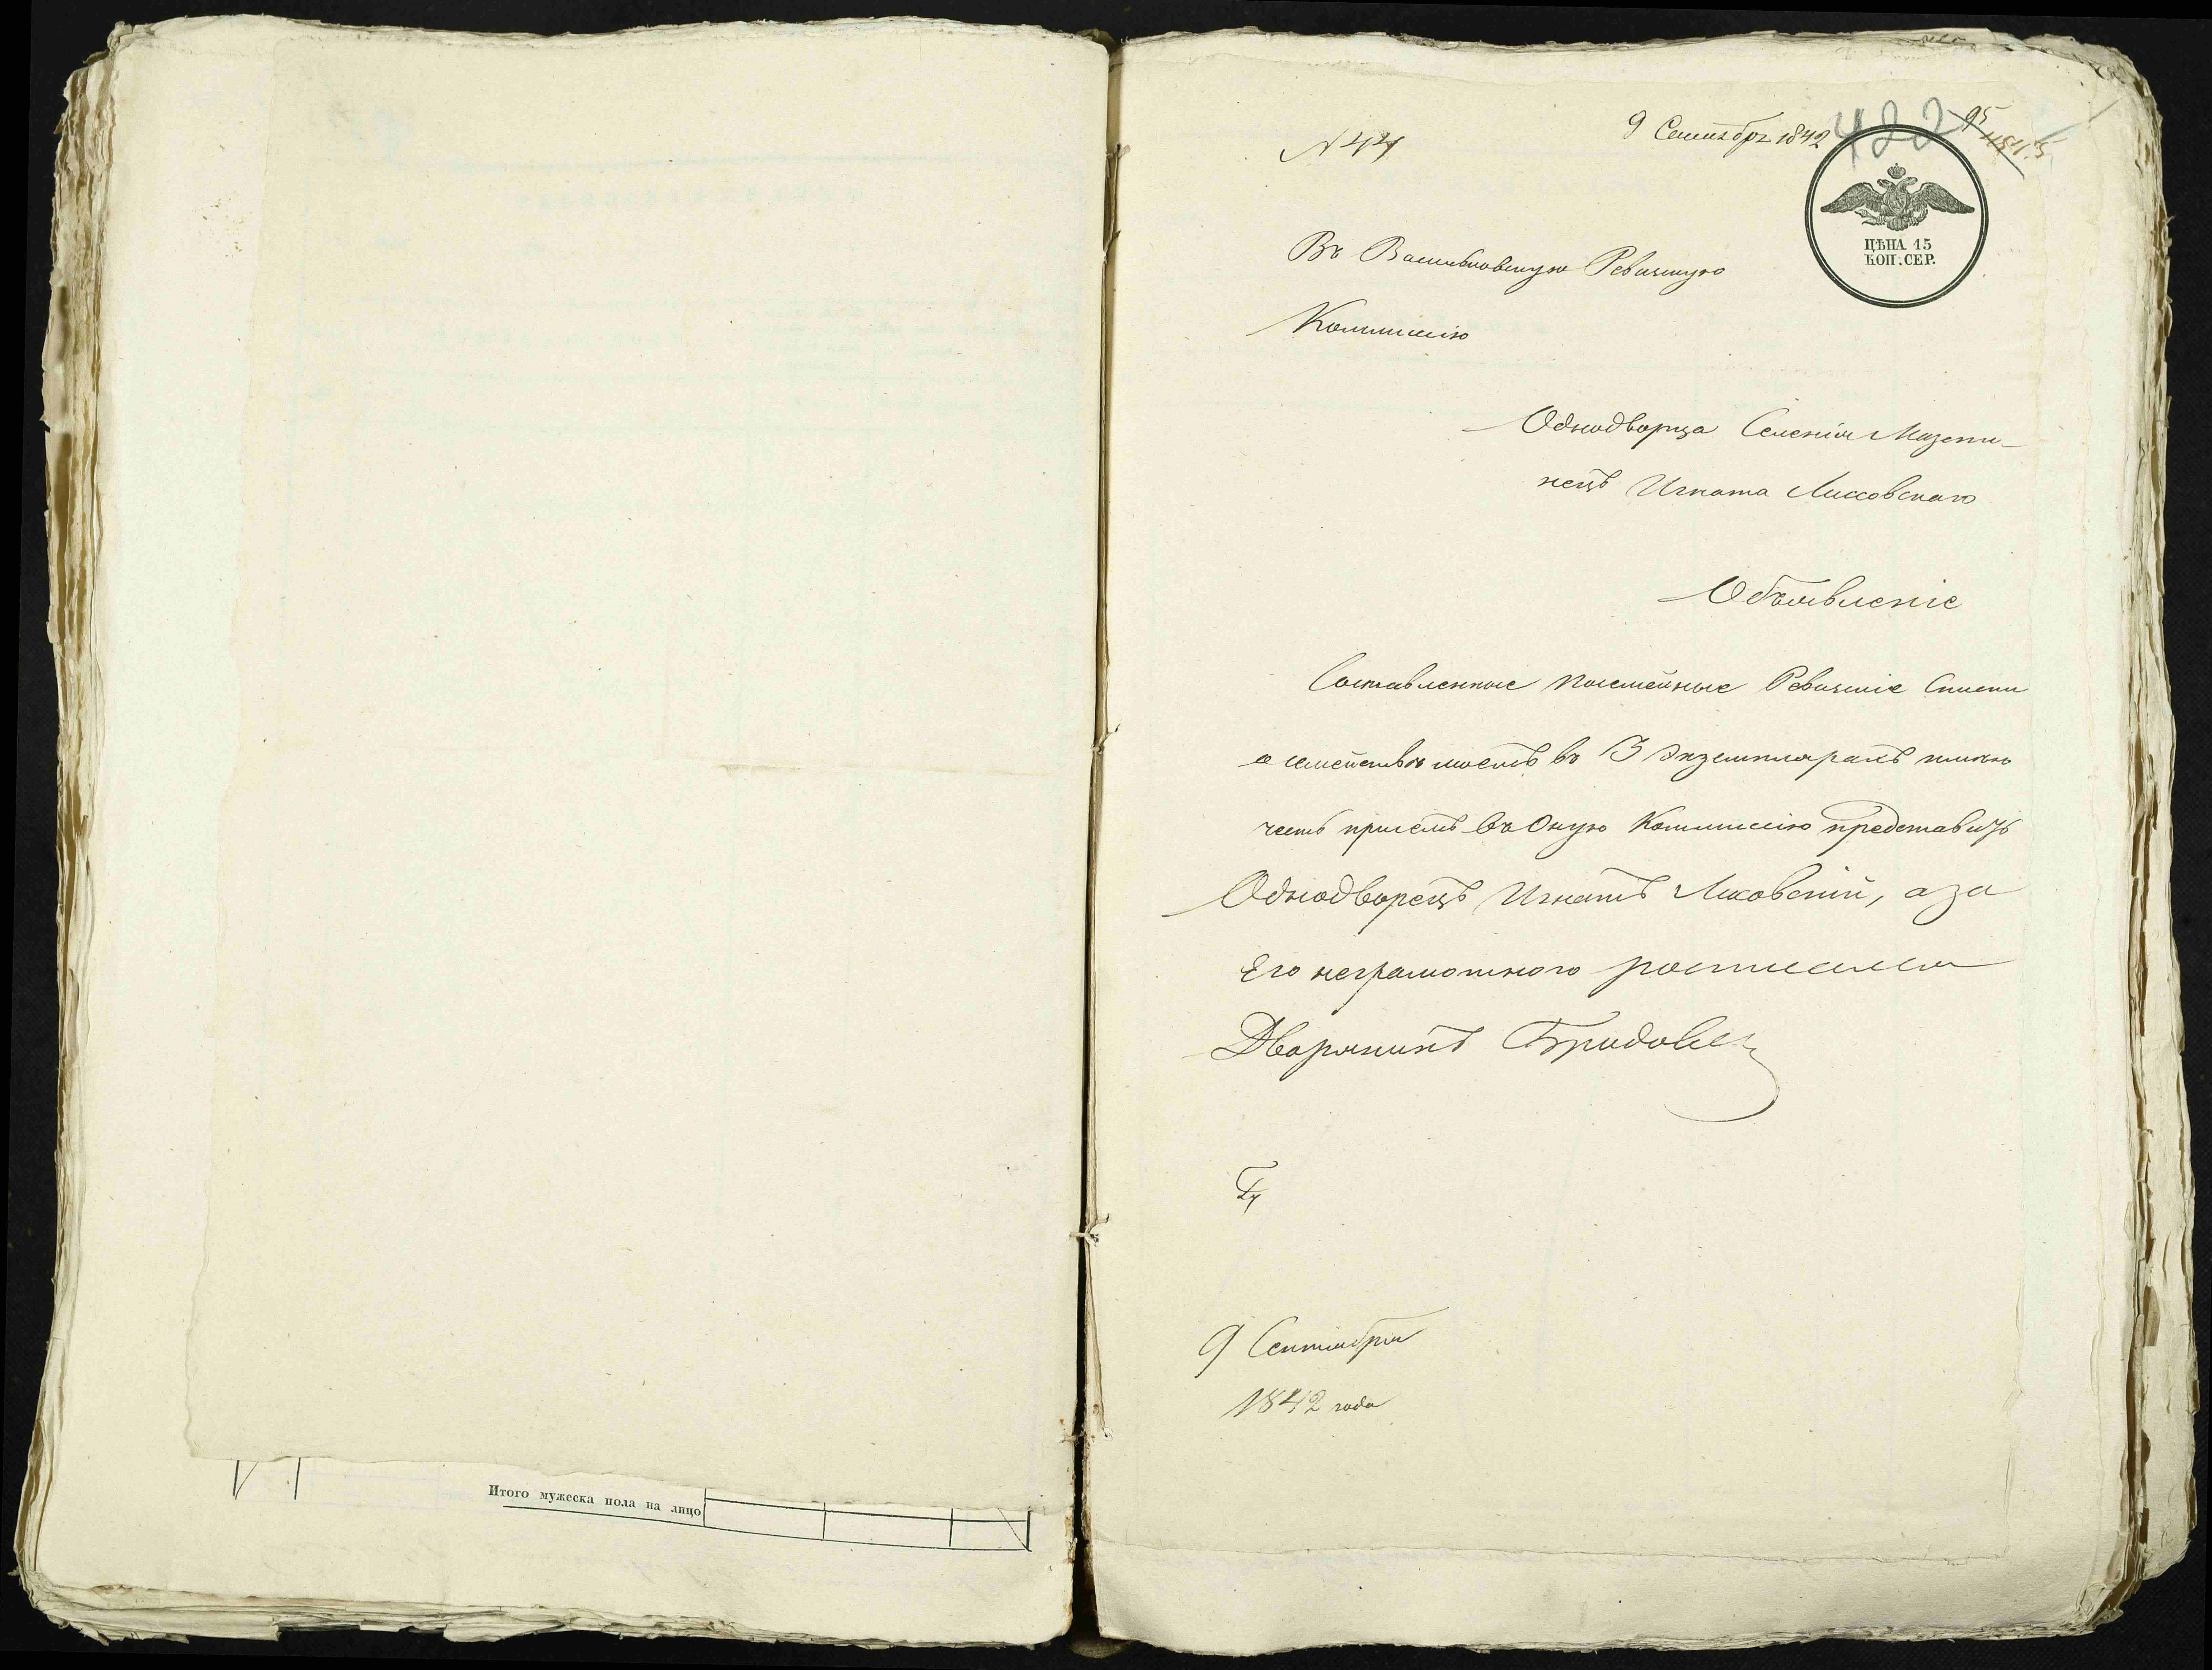 Итого мужеска пола на лицо
N 44
9 Сентября 1842
422
95
ЦѢНА 15
КОП. СЕР.
Въ Васильковскую Ревизкую
Коммисію
Однодворца Селенія Мазепи-
нецъ Игната Лиссовскаго
Объявленіе
Составленные посемейные Ревизкіе Списки
о семействѣ моемъ въ 3 экземплярахъ имѣю
честь присемъ въ Оную Коммиссію представить
Однодворецъ Игнатъ Лисовскій, а за
Его неграмотного росписался
Дворянинъ
9 Сентября
1842 года